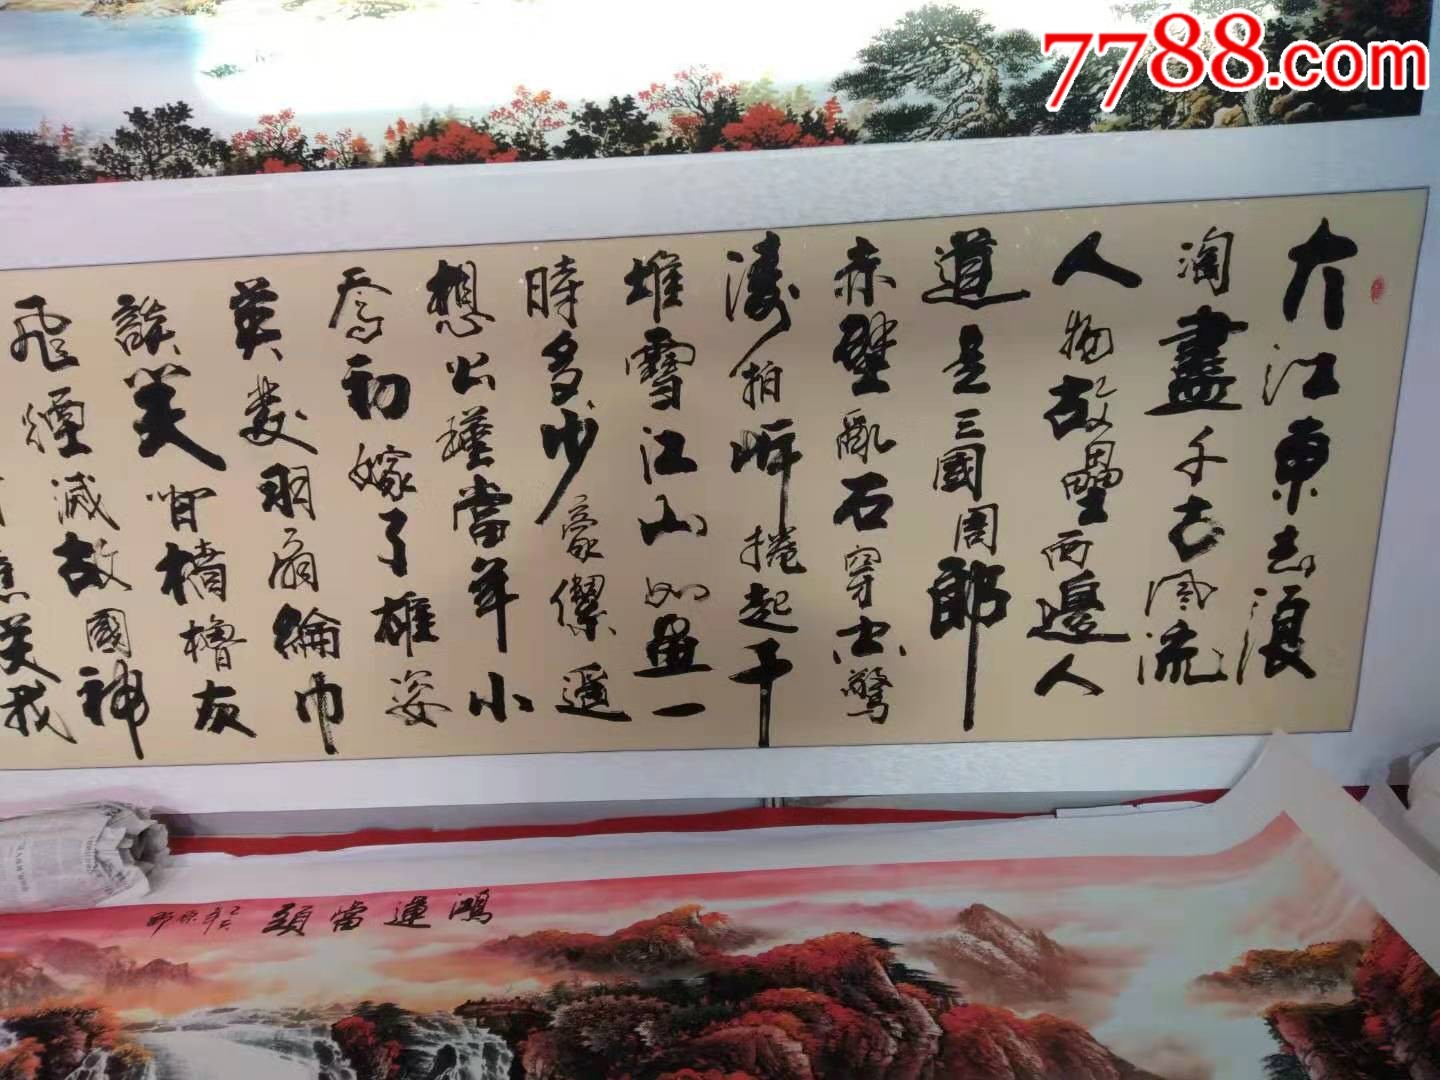 7788.com
大江東去浪
淘盡千古風流
人物故壘西邊人
道是三國周郎
赤壁亂石穿空驚
濤拍岸捲起千
堆雪江山如畫一
時多少豪傑遥
想公瑾當年小
喬初嫁了雄姿
英發羽扇綸巾
談笑間檣櫓灰
飛煙滅故國神
笑我
鴻運當頭